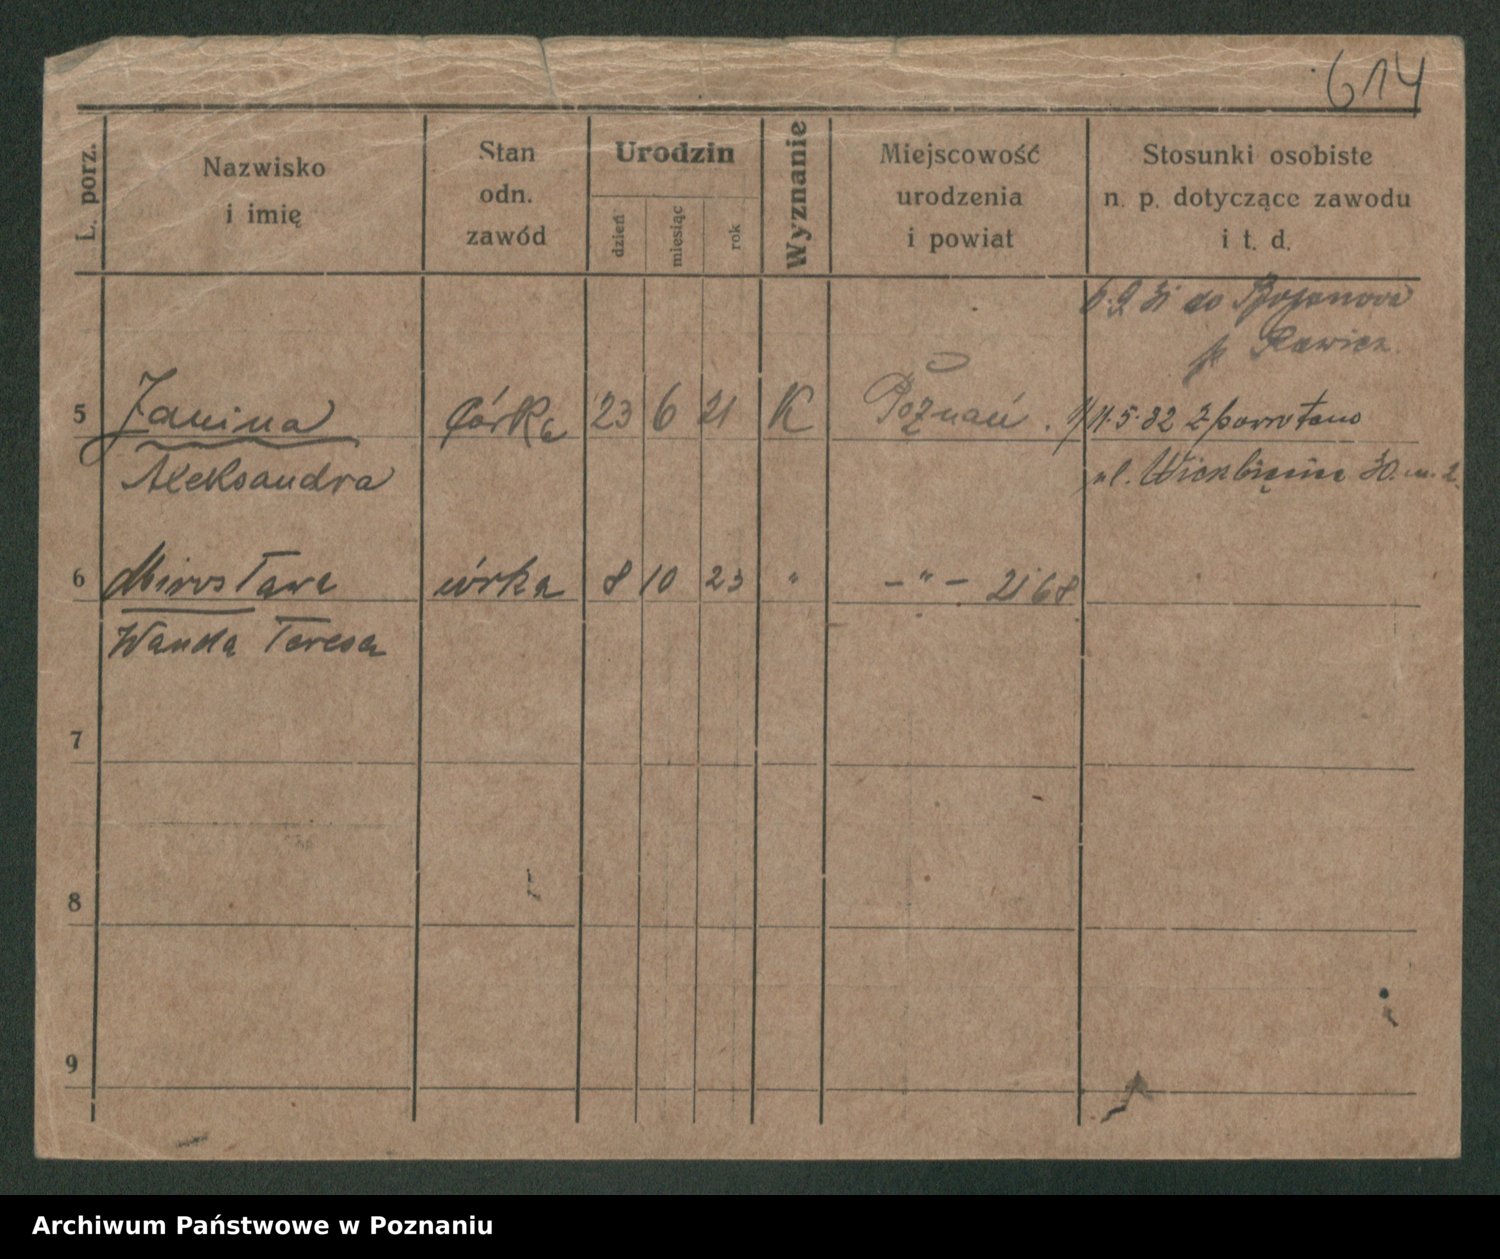 614
L. porz.
Nazwisko
i imię
Stan
odn.
zawód
Urodzin
dzień
miesiąc
rok
Wyznanie
Miejscowość
urodzenia
i powiat
Stosunki osobiste
n. p. dotyczące zawodu
i t. d.
do Bojanova
p. Rawicz.
5 Janina córka 23 6 21 K Poznań . 11.5.32 z powrotano
Aleksandra ul. 30. m. 2.
6 Mirosława córka 8 10 23 " – " – 2168
Wanda Teresa
7
8
9
Archiwum Państwowe w Poznaniu